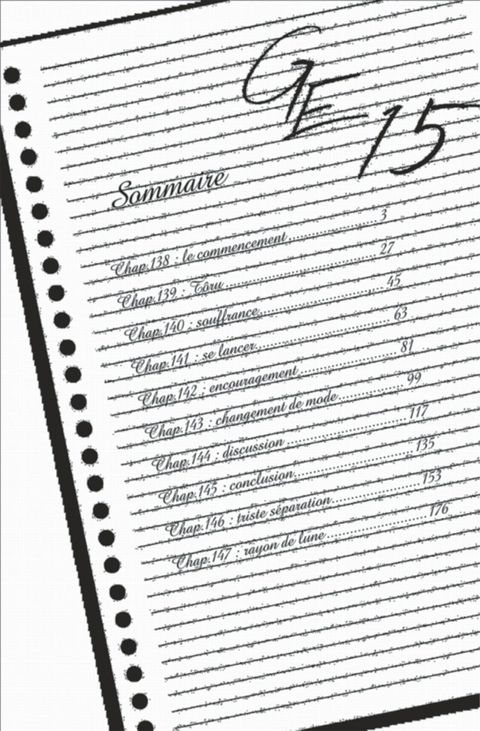 GE
15
Sommaire
Chap.138 : le commencement 3
Chap.139 : Tôru 27
Chap.140 : souffrance 45
Chap.141 : se lancer 63
Chap.142 : encouragement 81
Chap.143 : changement de mode 99
Chap.144 : discussion 117
Chap.145 : conclusion 135
Chap.146 : triste séparation 153
Chap.147 : rayon de lune 176